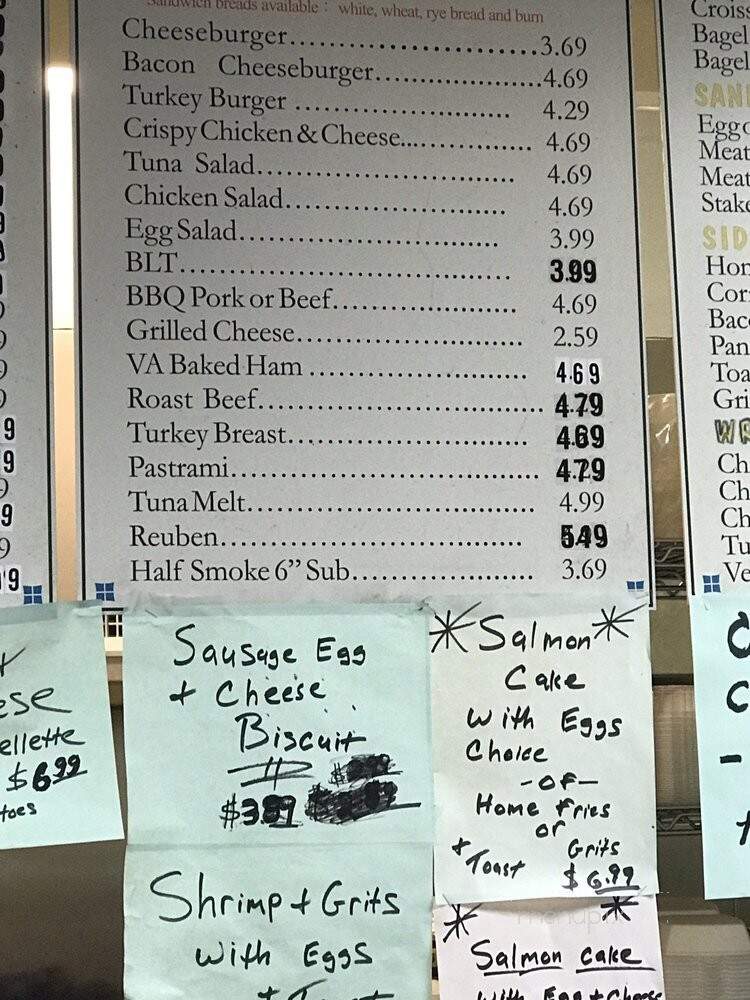 Sandwich breads available : white, wheat, rye bread and bum
Cheeseburger..............................3.69
Bacon Cheeseburger.....................4.69
Turkey Burger .............................. 4.29
Crispy Chicken & Cheese.................. 4.69
Tuna Salad................................ 4.69
Chicken Salad............................ 4.69
Egg Salad................................. 3.99
BLT......................................... 3.99
BBQ Pork or Beef....................... 4.69
Grilled Cheese............................ 2.59
VA Baked Ham ........................... 4.69
Roast Beef................................... 4.79
Turkey Breast............................. 4.69
Pastrami.................................... 4.79
Tuna Melt.................................. 4.99
Reuben...................................... 5.49
Half Smoke 6” Sub...................... 3.69
Croiss
Bagel
Bagel
SAN
Egg
Meat
Meat
Stake
SID
Hom
Cor
Baco
Pan
Toa
Gri
WR
Ch
Ch
Ch
Tu
Ve
9
9
9
9
9
ese
ellette
$6.99
toes
Sausage Egg
+ Cheese
Biscuit
$3.89
Shrimp + Grits
with Eggs
+ Toast
Salmon
Cake
with Eggs
Choice
-OF-
Home Fries
or
Grits
+ Toast
$6.99
Salmon cake
with Egg + Cheese